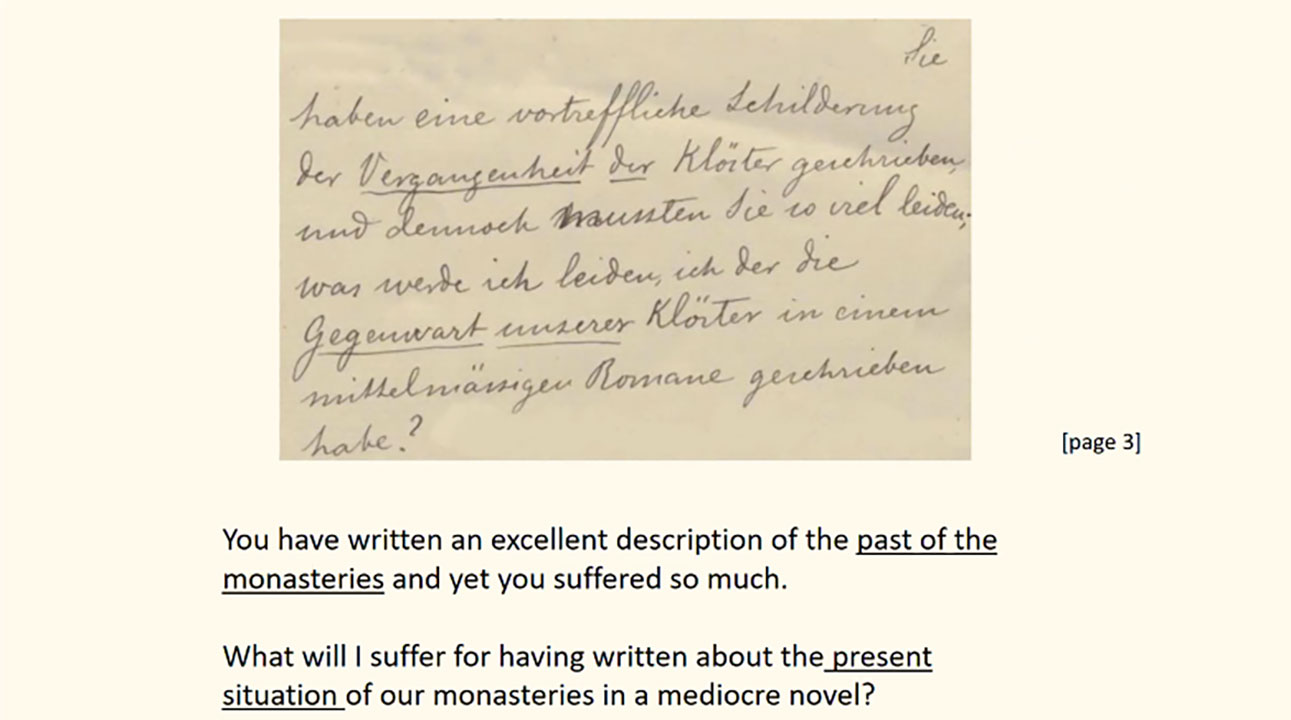 Sie
haben eine vortreffliche Schilderung
der Vergangenheit der Klöster geschrieben,
und dennoch mussten Sie so viel leiden;
was werde ich leiden, ich der die
Gegenwart unserer Klöster in einem
mittelmässigen Romane geschrieben
habe.?
[page 3]
You have written an excellent description of the past of the
monasteries and yet you suffered so much.
What will I suffer for having written about the present
situation of our monasteries in a mediocre novel?